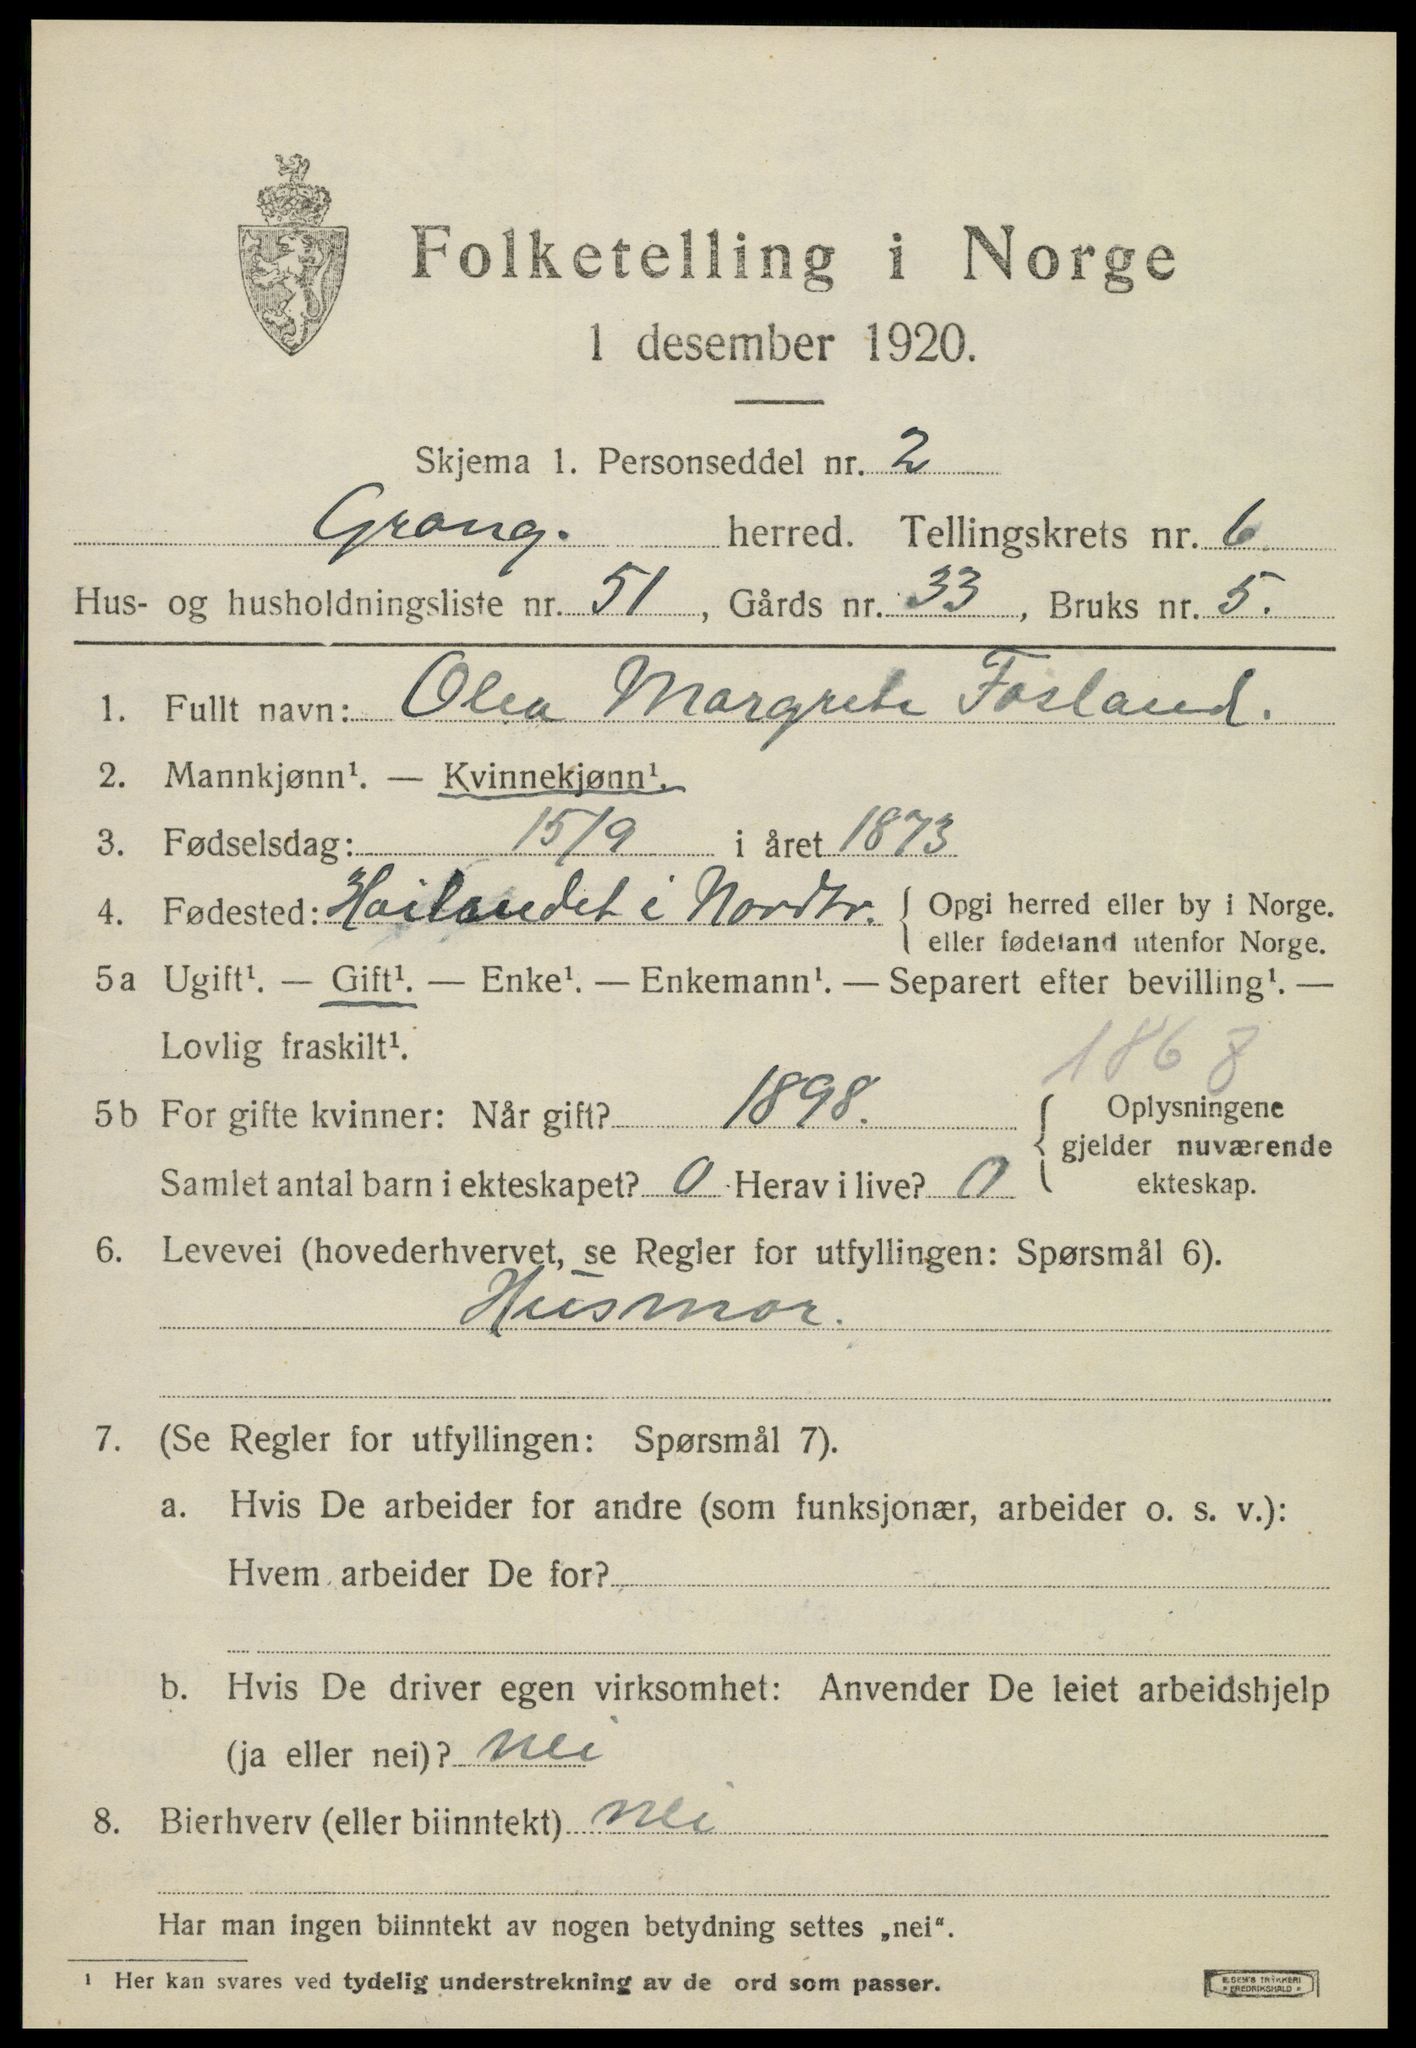 Folketelling i Norge
1 desember 1920.
Skjema 1. Personseddel nr. 2
Grong. herred. Tellingskrets nr. 6
Hus- og husholdningsliste nr. 51, Gårds nr. 33, Bruks nr. 5.
1. Fullt navn: Olea Margrete Fosland.
2. Mannkjønn¹. — Kvinnekjønn¹.
3. Fødselsdag: 15/9 i året 1873
4. Fødested: Høilandet i Nordtr. { Opgi herred eller by i Norge.
eller fødeland utenfor Norge.
5a Ugift¹. — Gift¹. — Enke¹. — Enkemann¹. — Separert efter bevilling¹. —
Lovlig fraskilt¹.
1868
5b For gifte kvinner: Når gift? 1898. { Oplysningene
gjelder nuværende
Samlet antal barn i ekteskapet? 0 Herav i live? 0 ekteskap.
6. Levevei (hovederhvervet, se Regler for utfyllingen: Spørsmål 6).
Husmor.
7. (Se Regler for utfyllingen: Spørsmål 7).
a. Hvis De arbeider for andre (som funksjonær, arbeider o. s. v.):
Hvem arbeider De for?
b. Hvis De driver egen virksomhet: Anvender De leiet arbeidshjelp
(ja eller nei)? nei
8. Bierhverv (eller biinntekt) nei
Har man ingen biinntekt av nogen betydning settes „nei“.
¹ Her kan svares ved tydelig understrekning av de ord som passer.
E. SEM'S TRYKKERI
FREDRIKSHALD